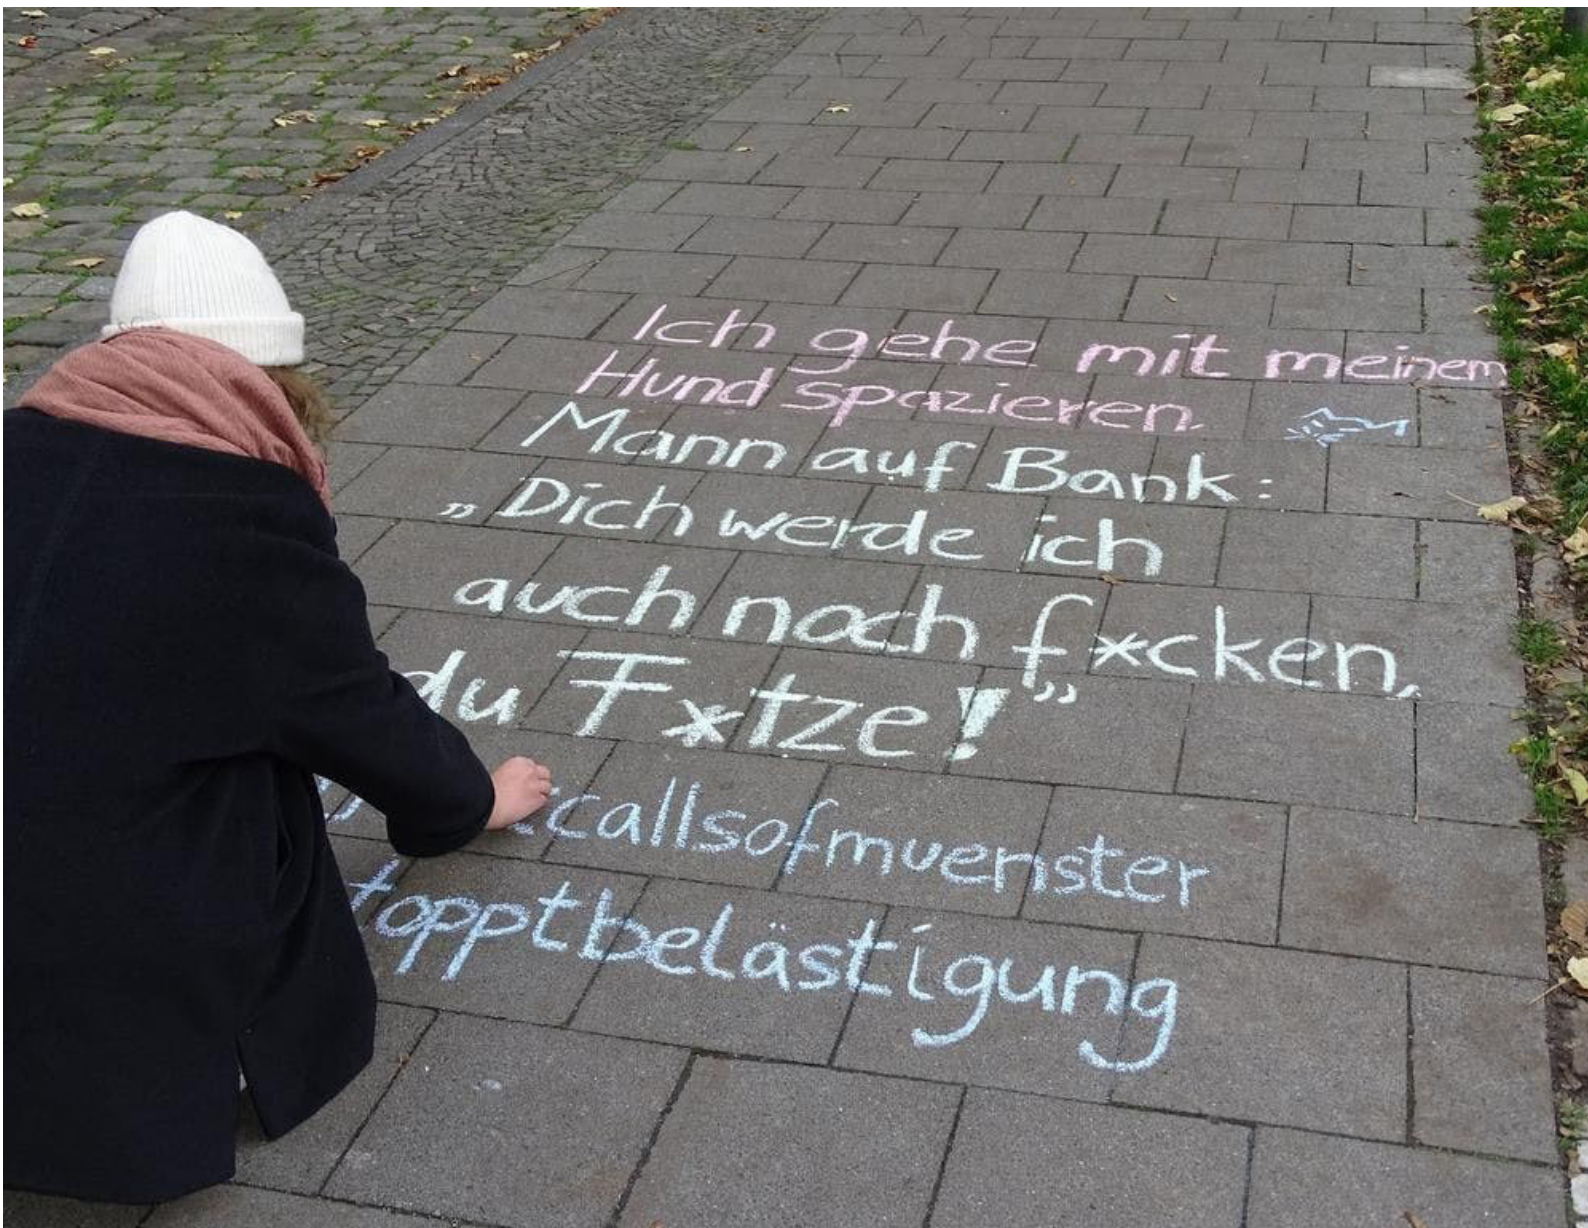 Ich gehe mit meinem
Hund spazieren.
Mann auf Bank:
„Dich werde ich
auch noch f*cken,
du F*tze!”
ccallsofmuenster
topptbelästigung